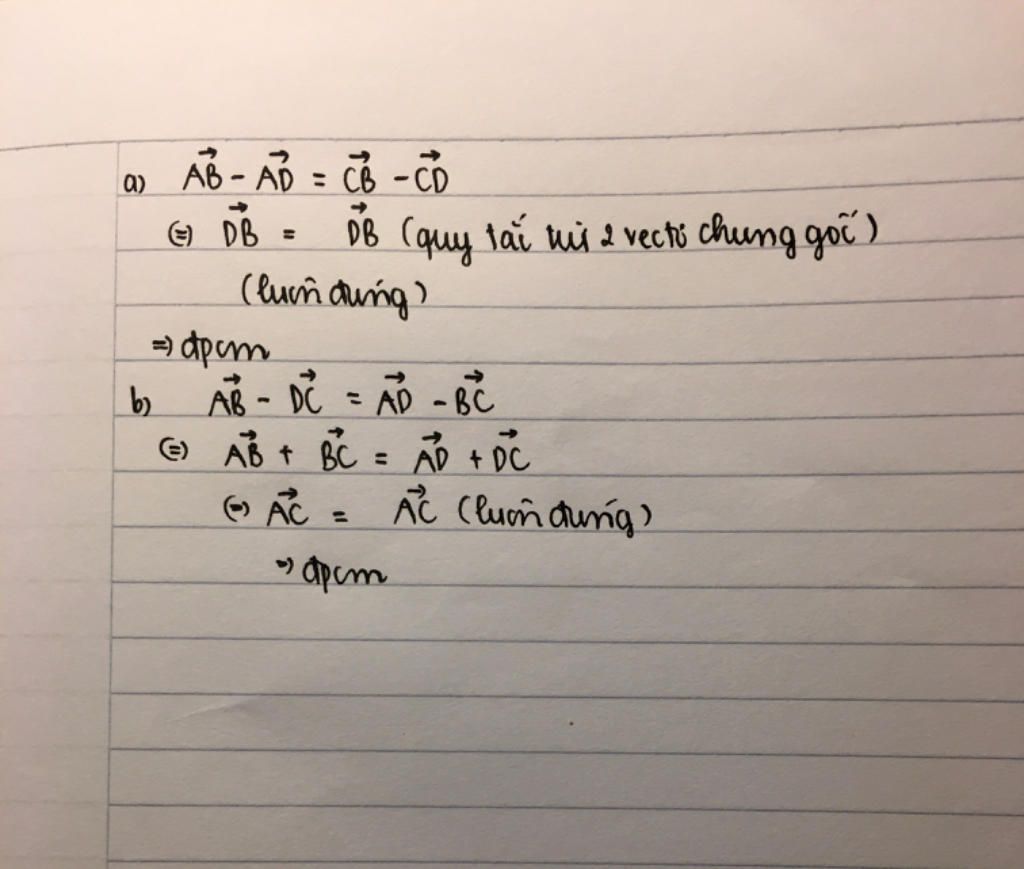 a) $\overrightarrow{AB} - \overrightarrow{AD} = \overrightarrow{CB} - \overrightarrow{CD}$
(=) $\overrightarrow{DB} = \overrightarrow{DB}$ (quy tắc trừ 2 vectơ chung gốc)
(luôn đúng)
=) đpcm
b) $\overrightarrow{AB} - \overrightarrow{DC} = \overrightarrow{AD} - \overrightarrow{BC}$
(=) $\overrightarrow{AB} + \overrightarrow{BC} = \overrightarrow{AD} + \overrightarrow{DC}$
(=) $\overrightarrow{AC} = \overrightarrow{AC}$ (luôn đúng)
=) đpcm